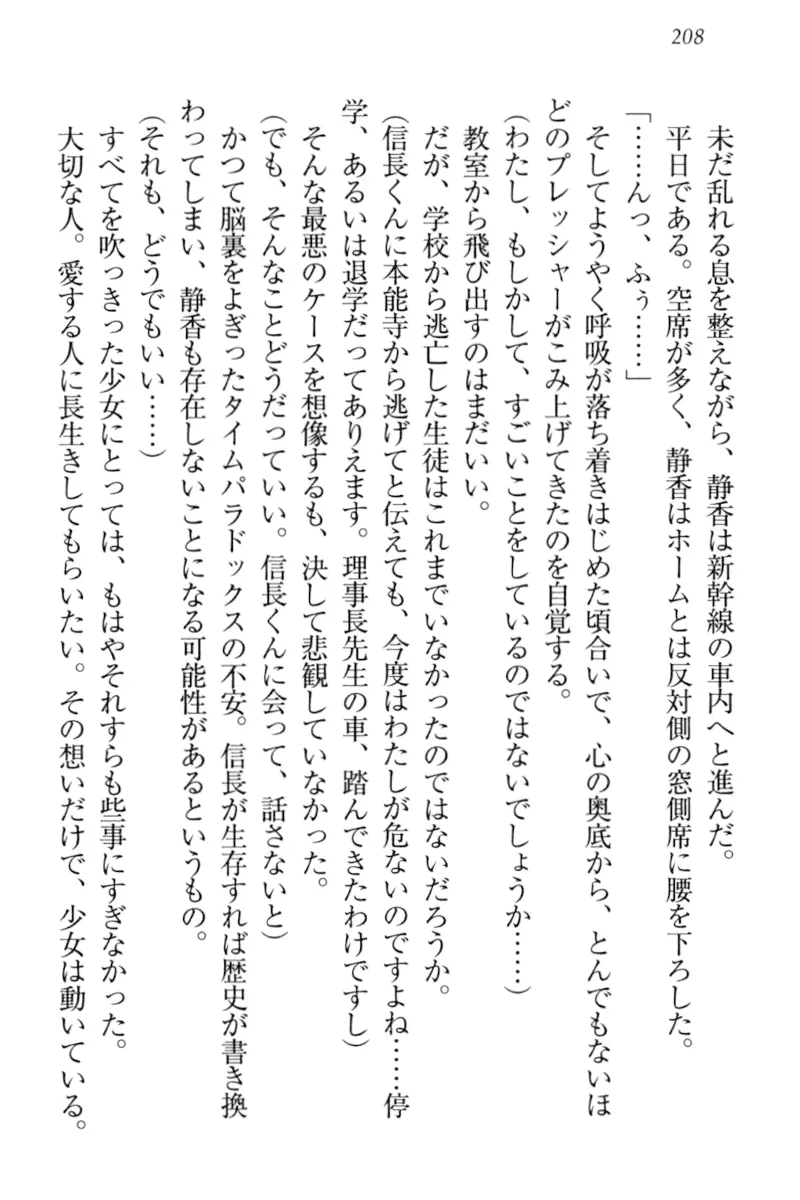 208
未だ乱れる息を整えながら、静香は新幹線の車内へと進んだ。
平日である。空席が多く、静香はホームとは反対側の窓側席に腰を下ろした。
「……んっ、ふぅ……」
そしてようやく呼吸が落ち着きはじめた頃合いで、心の奥底から、とんでもないほ
どのプレッシャーがこみ上げてきたのを自覚する。
（わたし、もしかして、すごいことをしているのではないでしょうか……）
教室から飛び出すのはまだいい。
だが、学校から逃亡した生徒はこれまでいなかったのではないだろうか。
（信長くんに本能寺から逃げてと伝えても、今度はわたしが危ないのですよね……停
学、あるいは退学だってありえます。理事長先生の車、踏んできたわけですし）
そんな最悪のケースを想像するも、決して悲観していなかった。
（でも、そんなことどうだっていい。信長くんに会って、話さないと）
かつて脳裏をよぎったタイムパラドックスの不安。信長が生存すれば歴史が書き換
わってしまい、静香も存在しないことになる可能性があるというもの。
（それも、どうでもいい……）
すべてを吹っきった少女にとっては、もはやそれすらも些事にすぎなかった。
大切な人。愛する人に長生きしてもらいたい。その想いだけで、少女は動いている。